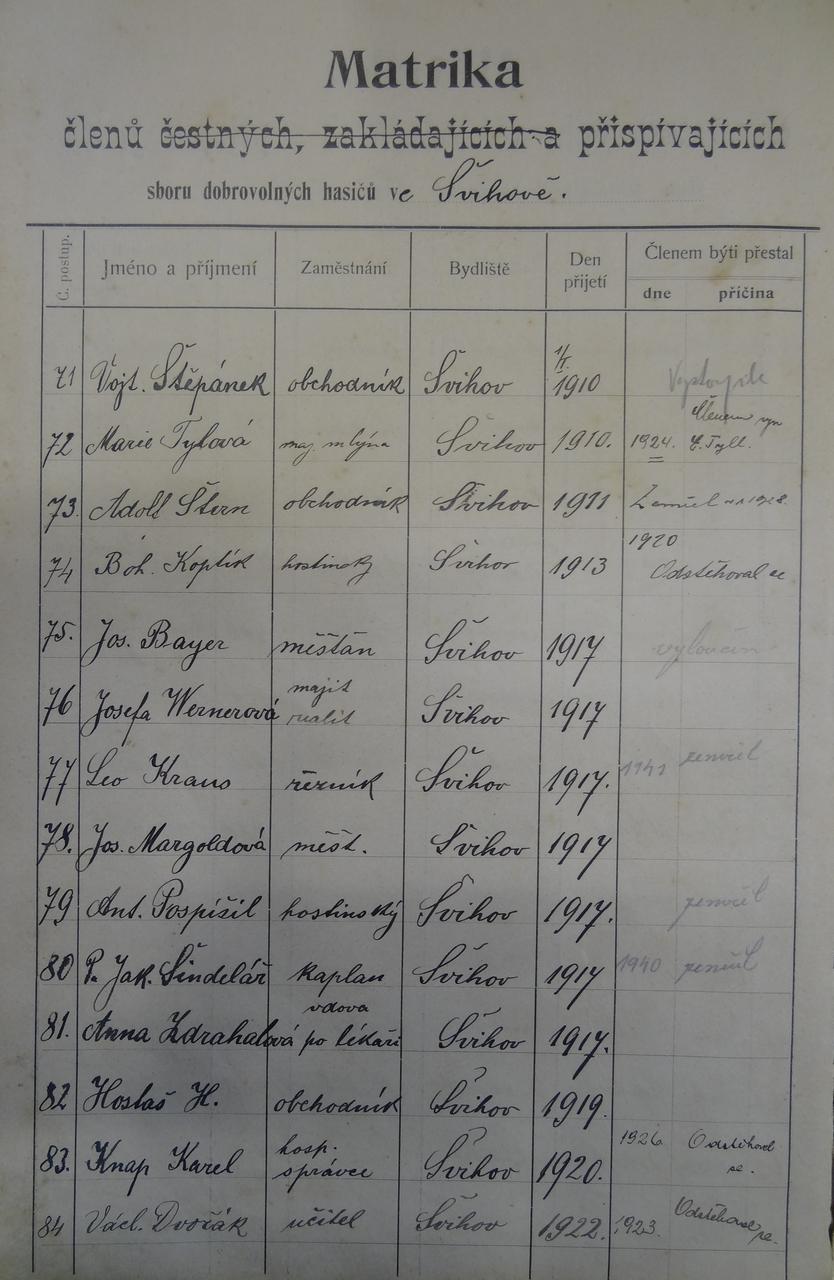 Matrika
členů čestných, zakládajících a přispívajících
sboru dobrovolných hasičů ve Švihově.
Č. postup.
Jméno a příjmení
Zaměstnání
Bydliště
Den přijetí
Členem býti přestal
dne
příčina
71 Vojt. Štěpánek obchodník Švihov 1/5. 1910
72 Marie Tylová maj. mlýna Švihov 1910. 1924. Členem syn Tyll.
73. Adolf Štern obchodník Švihov 1911 Zemřel 1928.
74 Boh. Koptík hostinský Švihov 1913 1920 Odstěhoval se
75. Jos. Bayer měšťan Švihov 1917 vyloučen
76 Josefa Wernerová majit realit Švihov 1917
77 Leo Kraus řezník Švihov 1917. 1941 zemřel
78. Jos. Margoldová měšť. Švihov 1917
79 Ant. Pospíšil hostinský Švihov 1917. zemřel
80 P. Jak. Šindelář kaplan Švihov 1917 1940 zemřel
81. Anna Zdrahalová vdova po lékaři Švihov 1917.
82 Hostaš H. obchodník Švihov 1919.
83. Knap Karel hosp. správce Švihov 1920. 1926. Odstěhoval se.
84 Václ. Dvořák učitel Švihov 1922. 1923. Odstěhoval se.